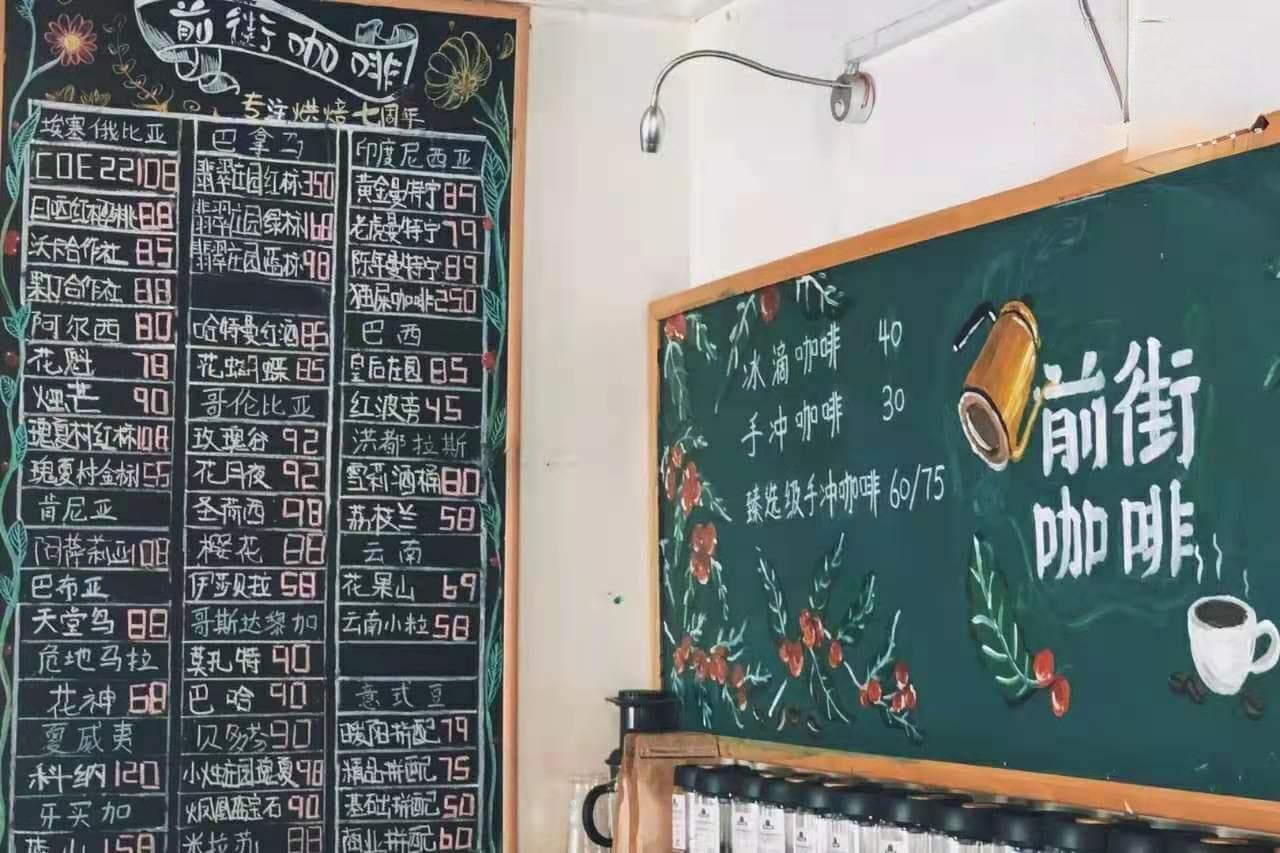 前街咖啡
专注烘焙七周年
埃塞俄比亚
COE 22 108
日晒红樱桃 88
沃卡合作社 85
果丁合作社 88
阿尔西 80
花魁 78
烟芒 90
瑰夏村红标 108
瑰夏村金标
肯尼亚
阿萨莉亚 108
巴布亚
天堂鸟 88
危地马拉
花神 68
夏威夷
科纳 120
牙买加
158
巴拿马
翡翠庄园红标 350
翡翠庄园绿标 168
翡翠庄园蓝标 98
哈特曼红酒 85
花蝴蝶 85
哥伦比亚
玫瑰谷 92
花月夜 92
圣荷西 98
樱花 88
伊莎贝拉 58
哥斯达黎加
莫扎特 90
巴哈 90
贝多芬 90
小烛庄园瑰夏 98
火凤凰蓝宝石 90
米拉苏 88
印度尼西亚
黄金曼特宁 89
老虎曼特宁 79
陈年曼特宁 89
猫屎咖啡 250
巴西
皇后庄园 85
红波旁 45
洪都拉斯
雪莉酒桶 80
荔枝兰 58
云南
花果山 69
云南小粒 58
意式豆
暖阳拼配 79
精品拼配 75
基础拼配 50
商业拼配 60
冰滴咖啡 40
手冲咖啡 30
臻选级手冲咖啡 60/75
前街
咖啡